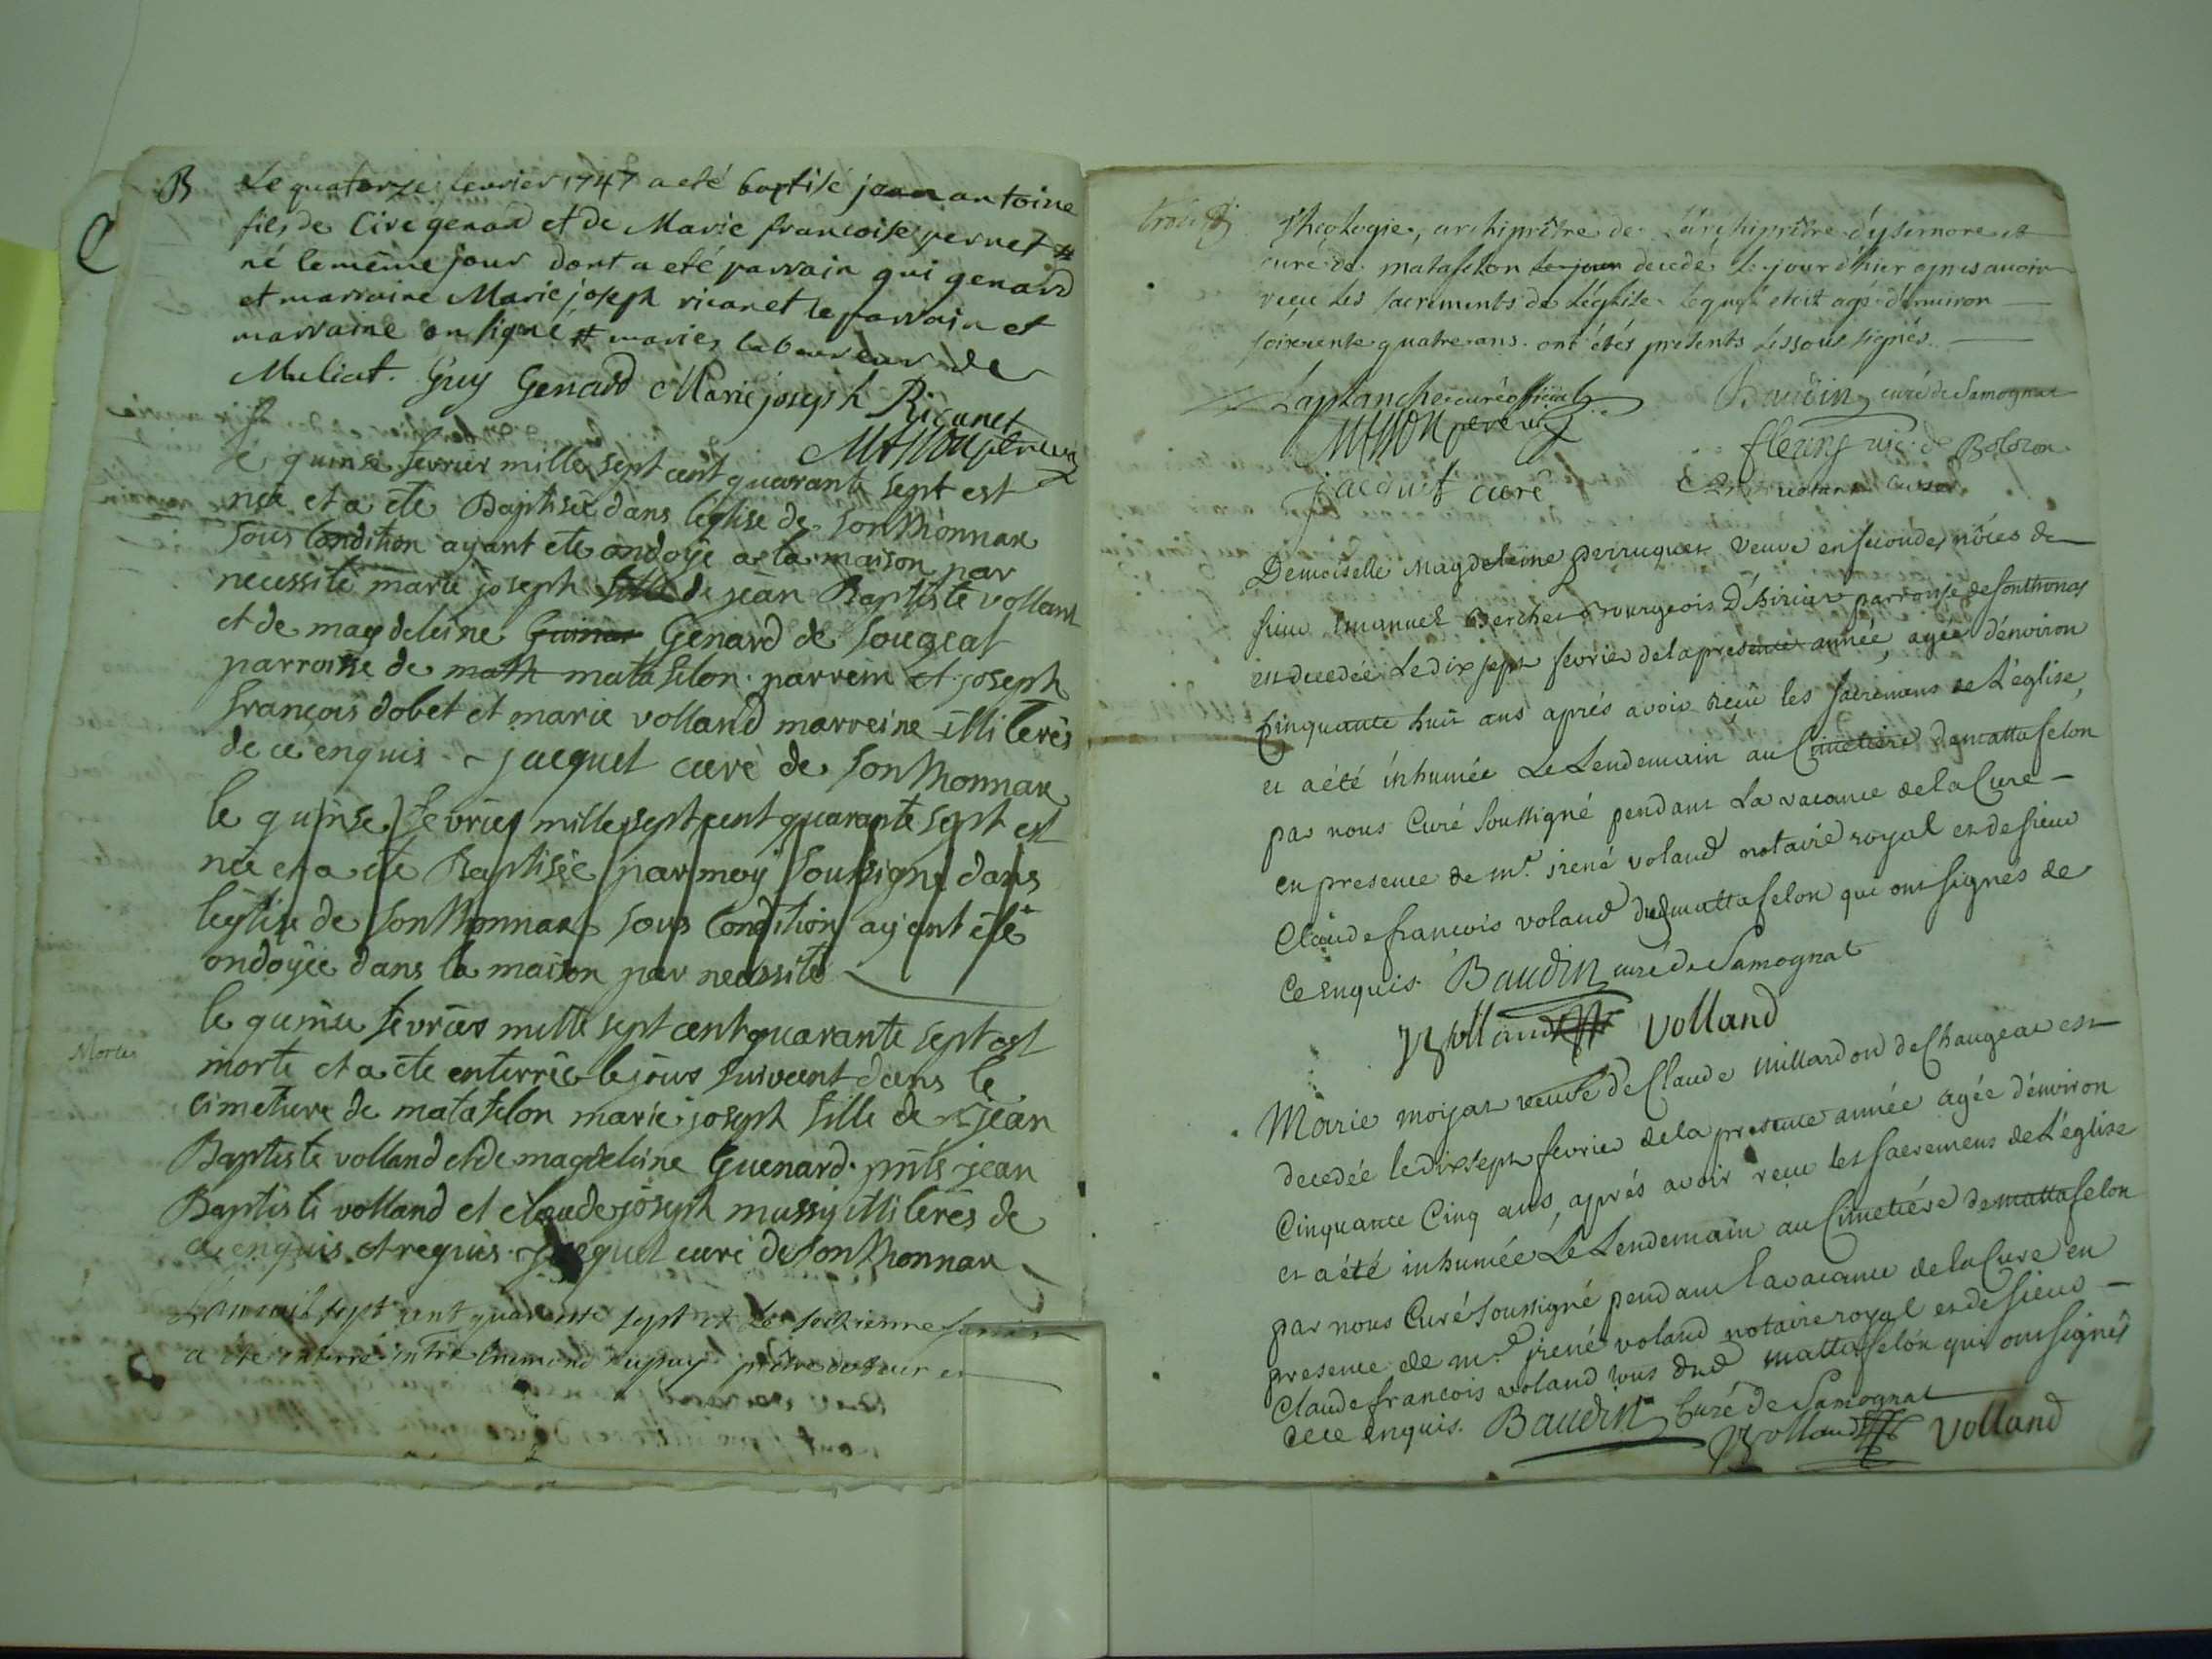 B
Le quatorze fevrier 1747 a eté baptisé jean antoine
fils de Cire genard et de Marie francoise pernet #
né le même jour dont a eté parrain gui genard
et marraine Marie joseph ricanet le parrain et
marraine on signé # mariés laboureurs de
Muliat. Guy Genard Marie joseph Ricanet
le quinse fevrier mille sept cent quarante sept est
née et a ete Baptisée dans l'eglise de sonthonnax
sous Condition ayant ete ondoÿe a la maison par
necessité marie joseph fille de jean Baptiste volland
et de magdeleine Guinar Genard de Sougeat
parroisse de math matafelon. parrein et joseph
françois dobet et marie volland marreine illiterés
de ce enquis jacquet curé de sonthonnax
le quinse fevrier mille sept cent quarante sept est
née et a été Baptisée par moy soussigné dans
l'eglise de sonthonnax sous Condition ayant été
ondoÿée dans la maison par necessité
Morte
le quinse fevrier mille sept cent quarante sept est
morte et a ete enterrée le jour suivant dans le
cimetiere de matafelon marie joseph fille de jean
Baptiste volland et de magdeleine Guenard. pnts jean
Baptiste volland et claude joseph mussy illiterés de
ce enquis et requis. jacquet curé de sonthonnax
L'an mil sept cent quarante sept et le seizieme fevrier
a été enterré Enemond dupuy prêtre docteur en
theologie, archiprêtre de L'archiprêtré d'ysernore et
curé de matafelon le jour decedé le jour d'hier apres avoir
reçu les sacrements de L'église lequel etoit agé d'environ
soixente quatre ans. ont étés presents les sous signés.
Laplanche curé official Baudin curé de Samognat
fleury vic. de Bolozon
jacquet curé
Demoiselle Magdeleine perruquet veuve en secondes nôces de
sieur Emanuel Bercher Bourgeois D'hirias parroisse de sonthonas
est decedée Le dix sept fevrier de la presente année, agée d'environ
cinquante huit ans aprés avoir reçu les sacremens de L'église,
et a été inhumée Le Lendemain au Cimetiére de mattafelon
par nous Curé soussigné pendant La vacance de la Cure
en presence de mr. irené voland notaire royal et de sieur
Claude francois voland dud mattafelon qui ont signés de
ce enquis. Baudin curé de Samognat
Volland Volland
Marie moyat veuve de Claude Millardon de Chaugeat est
decedée le dix sept fevrier de la presente année agée d'environ
Cinquante Cinq ans, aprés avoir reçu les sacremens de L'église
et a été inhumée Le Lendemain au Cimetiére de mattafelon
par nous Curé soussigné pendant la vacance de la Cure en
presence de mr. irené voland notaire royal et de sieur
Claude francois voland tous dud mattafelon qui ont signés
de ce enquis. Baudin Curé de Samognat
Volland Volland